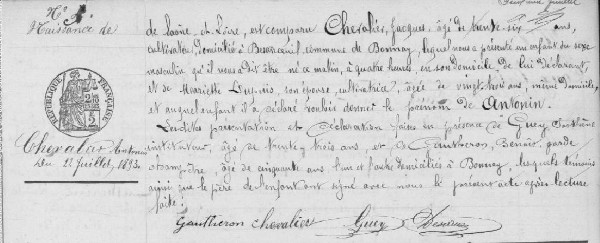 Naissance de
Chevalier Antonin
Du 2 Juillet, 1893.
RÉPUBLIQUE FRANÇAISE
de Saône-et-Loire, est comparu Chevalier, Jacques, âgé de trente-six ans,
cultivateur, domicilié à commune de Bonnay, lequel nous a présenté un enfant du sexe
masculin qu'il nous a dit être né ce matin, à quatre heures, en son domicile de lui déclarant,
et de Mariette son épouse, cultivatrice, âgée de vingt-trois ans, même domicile,
et auquel enfant il a déclaré vouloir donner le prénom de Antonin.
Lesdites présentation et déclaration faites en présence de Guey,
instituteur, âgé de trente-trois ans, et de Gautheron, Benoît, garde
champêtre, âgé de cinquante ans, l'un et l'autre domiciliés à Bonnay, lesquels témoins
ainsi que le père de l'enfant ont signé avec nous le présent acte après lecture
faite.
Gautheron Chevalier Guey